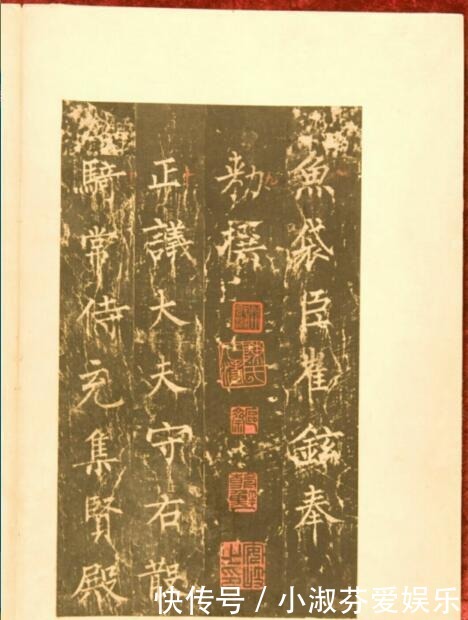 魚袋臣崔鉉奉
勑撰
正議大夫守右散
騎常侍充集賢殿
快传号 / 小淑芬爱娱乐